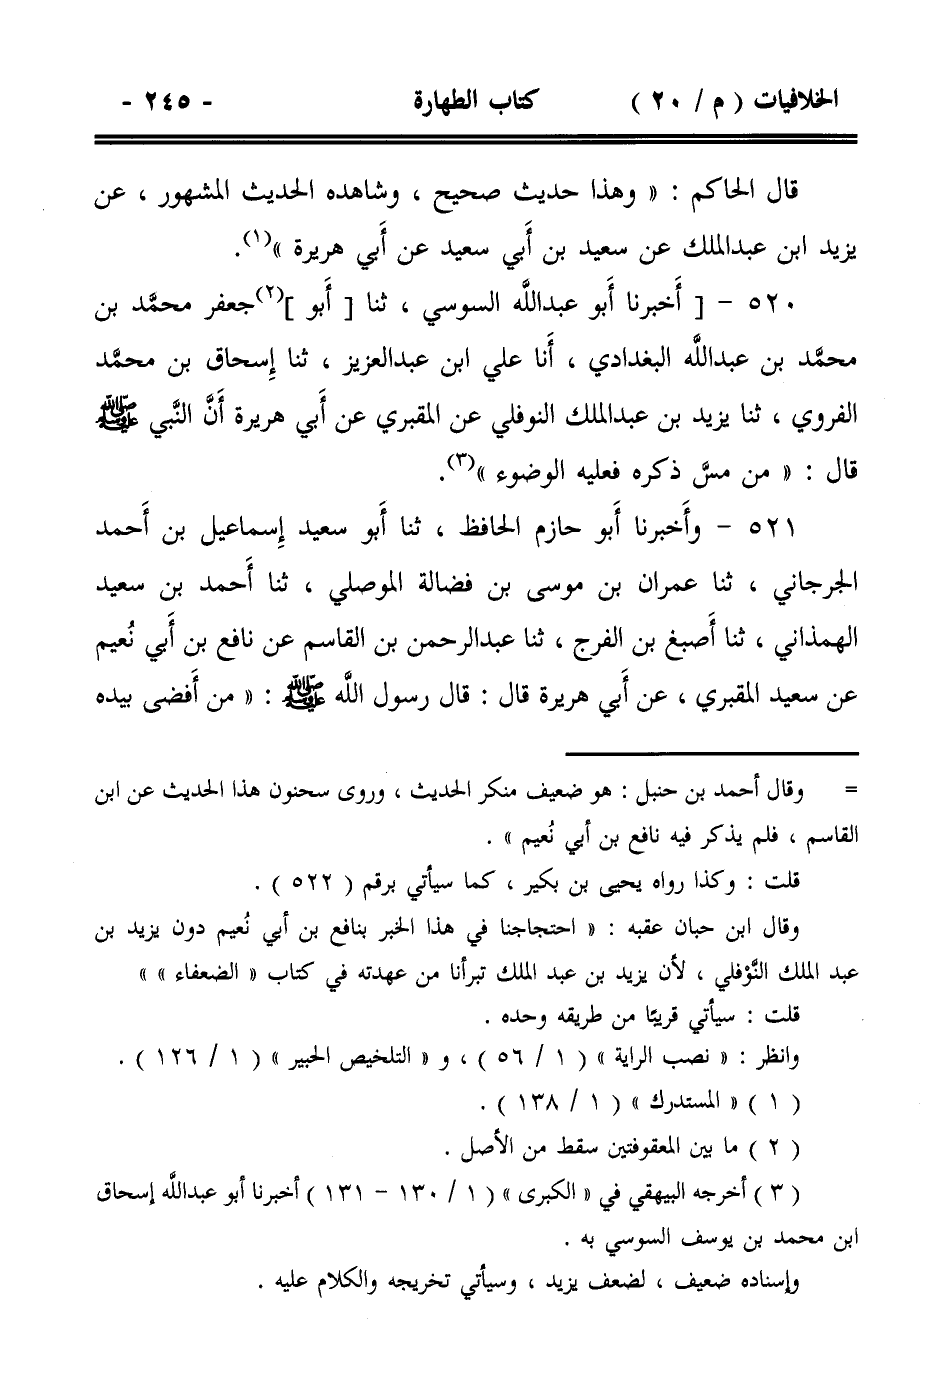 الخلافيات ( م / ٢٠ ) كتاب الطهارة - ٢٤٥ -
قال الحاكم : « وهذا حديث صحيح ، وشاهده الحديث المشهور ، عن
يزيد ابن عبدالملك عن سعيد بن أَبي سعيد عن أَبي هريرة »(١).
٥٢٠ - [ أَخبرنا أَبو عبداللَّه السوسي ، ثنا [ أَبو ](٢)جعفر محمَّد بن
محمَّد بن عبداللَّه البغدادي ، أَنا علي ابن عبدالعزيز ، ثنا إِسحاق بن محمَّد
الفروي ، ثنا يزيد بن عبدالملك النوفلي عن المقبري عن أَبي هريرة أَنَّ النَّبي ﷺ
قال : « من مسَّ ذكره فعليه الوضوء »(٣).
٥٢١ - وأَخبرنا أَبو حازم الحافظ ، ثنا أَبو سعيد إِسماعيل بن أَحمد
الجرجاني ، ثنا عمران بن موسى بن فضالة الموصلي ، ثنا أَحمد بن سعيد
الهمذاني ، ثنا أَصبغ بن الفرج ، ثنا عبدالرحمن بن القاسم عن نافع بن أَبي نُعيم
عن سعيد المقبري ، عن أَبي هريرة قال : قال رسول اللَّه ﷺ : « من أَفضى بيده
= وقال أحمد بن حنبل : هو ضعيف منكر الحديث ، وروى سحنون هذا الحديث عن ابن
القاسم ، فلم يذكر فيه نافع بن أبي نُعيم » .
قلت : وكذا رواه يحيى بن بكير ، كما سيأتي برقم ( ٥٢٢ ) .
وقال ابن حبان عقبه : « احتجاجنا في هذا الخبر بنافع بن أبي نُعيم دون يزيد بن
عبد الملك النَّوْفلي ، لأن يزيد بن عبد الملك تبرأنا من عهدته في كتاب « الضعفاء » »
قلت : سيأتي قريبًا من طريقه وحده .
وانظر : « نصب الراية » ( ١ / ٥٦ ) ، و « التلخيص الحبير » ( ١ / ١٢٦ ) .
( ١ ) « المستدرك » ( ١ / ١٣٨ ) .
( ٢ ) ما بين المعقوفتين سقط من الأصل .
( ٣ ) أخرجه البيهقي في « الكبرى » ( ١ / ١٣٠ - ١٣١ ) أخبرنا أبو عبداللَّه إسحاق
ابن محمد بن يوسف السوسي به .
وإسناده ضعيف ، لضعف يزيد ، وسيأتي تخريجه والكلام عليه .